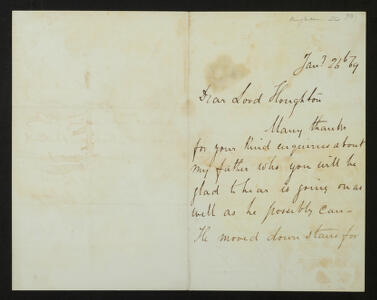 Jany 26th/69
Dear Lord Houghton
Many thanks
for your kind enquiries about
my father who you will be
glad to hear is going on as
well as he possibly can -
He moved down stairs for